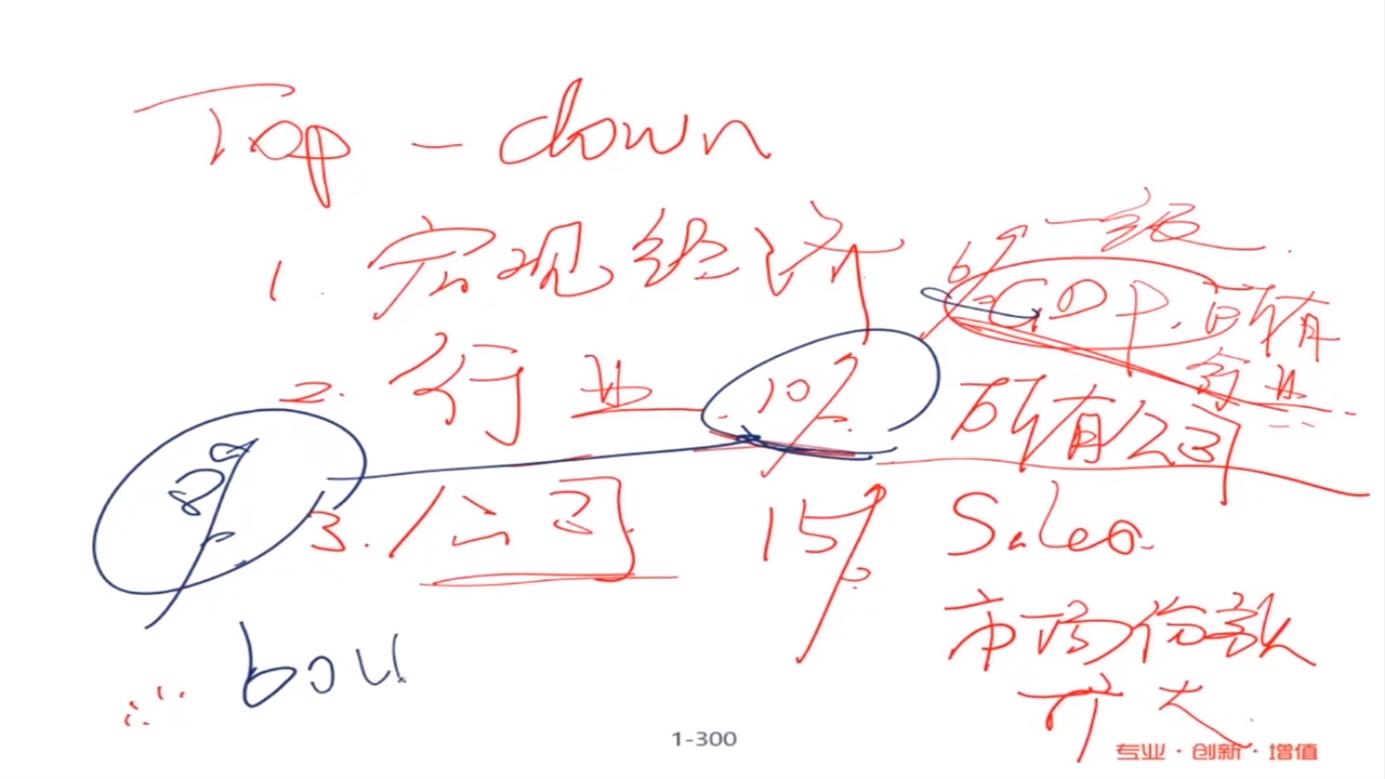 Top-down
1. 宏观经济
6% 一级
GDP. 所有行业
2. 行业 10%
所有公司
8%
3. 公司 15% Sales
市场份额
扩大
bou
1-300
专业·创新·增值